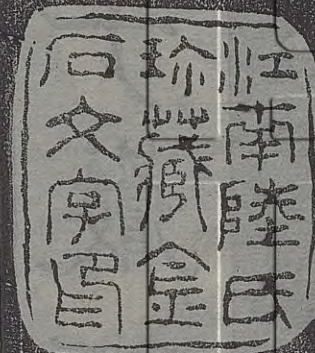 江南陸氏
珍藏金
石文字印